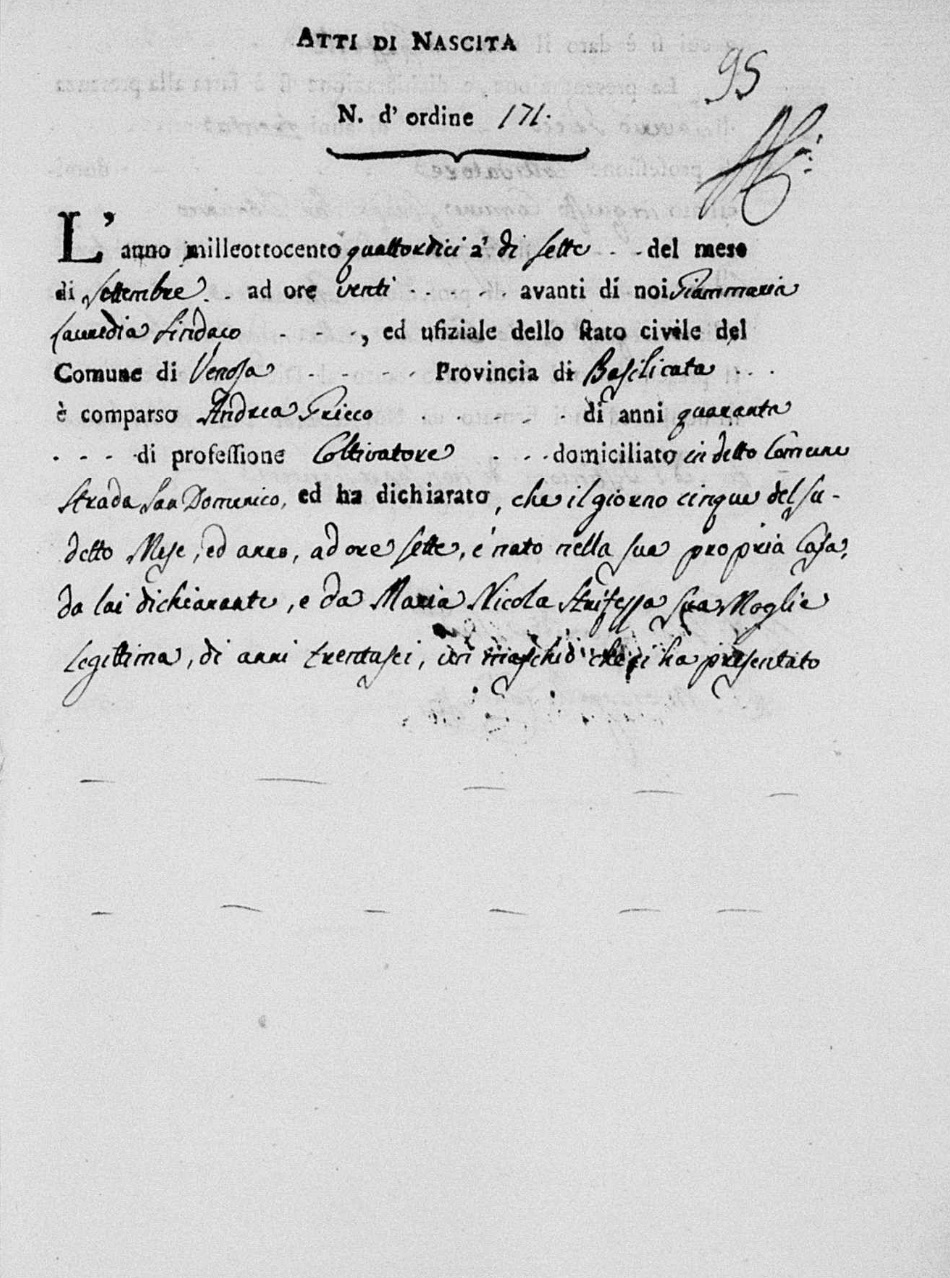 ATTI DI NASCITA
95
N. d' ordine 171.
L' anno milleottocento quattordici a' di sette - - del mese
di Settembre - - ad ore venti - - - - - avanti di noi Giammaria
Lauridia Sindaco - - - - , ed ufiziale dello stato civile del
Comune di Venosa - - - - - Provincia di Basilicata - - -
è comparso Andrea Grieco - - - di anni quaranta
- - - - di professione Coltivatore - - - domiciliato in detto Comune
Strada San Domenico, ed ha dichiarato, che il giorno cinque del su-
detto Mese, ed anno, ad ore sette, è nato nella sua propria Casa,
da lui dichiarante, e da Maria Nicola sua Moglie
legittima, di anni trentasei, un maschio che ci ha presentato